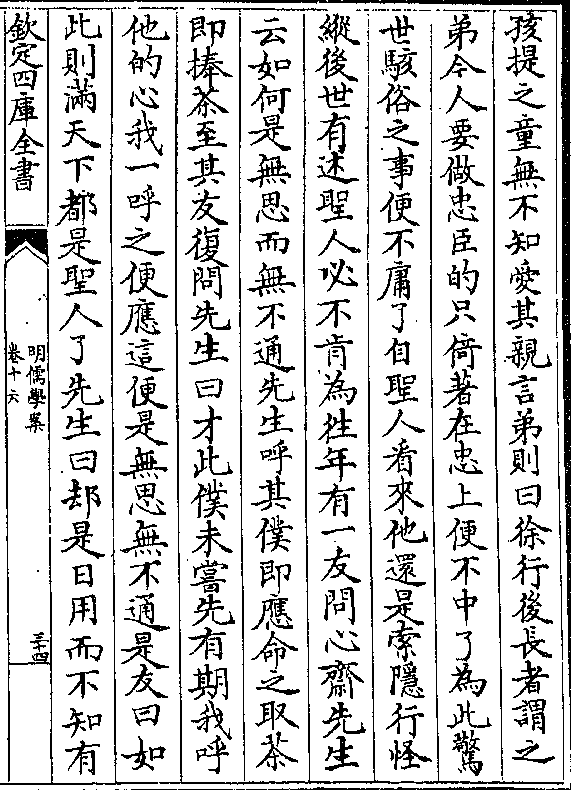 孩提之童無不知愛其親言弟則曰徐行後長者謂之
弟今人要做忠臣的只倚著在忠上便不中了為此驚
世駭俗之事便不庸了自聖人看來他還是索隱行怪
縱後世有述聖人必不肯為往年有一友問心齋先生
云如何是無思而無不通先生呼其僕即應命之取茶
即捧茶至其友復問先生曰才此僕未嘗先有期我呼
他的心我一呼之便應這便是無思無不通是友曰如
此則滿天下都是聖人了先生曰却是日用而不知有
欽定四庫全書
明儒學案
卷十六
三十四